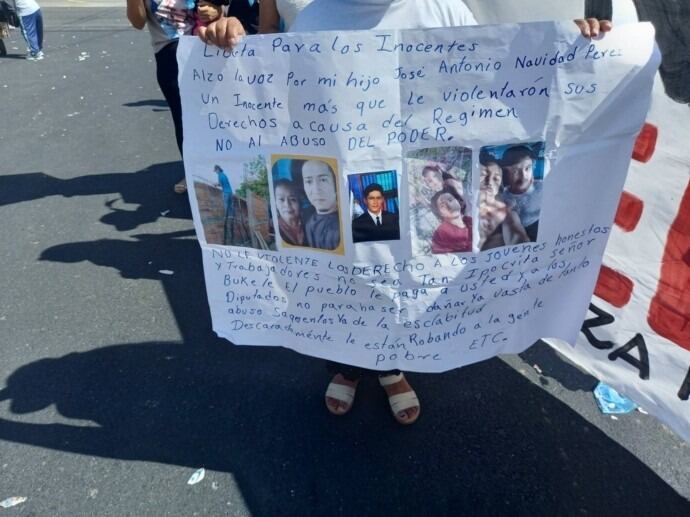 Libertad Para los Inocentes
Alzó la voz Por mi hijo José Antonio Navidad Perez
Un Inocente más que le violentarón sus
Derechos a causa del Regimen
NO Al ABUSO DEL PODER.
NO LE VIOLENTE LOS DERECHO A LOS JOVENES honestos
y Trabajadores no sea Tan Ipocrita señor
Bukele El pueblo le paga a usted y a los
Diputados no para haser dañar ya vasta de tanto
abuso Saquemos Ya de la esclabitud
Descaradaménte le están Robando a la gente
pobre ETC.
ZA